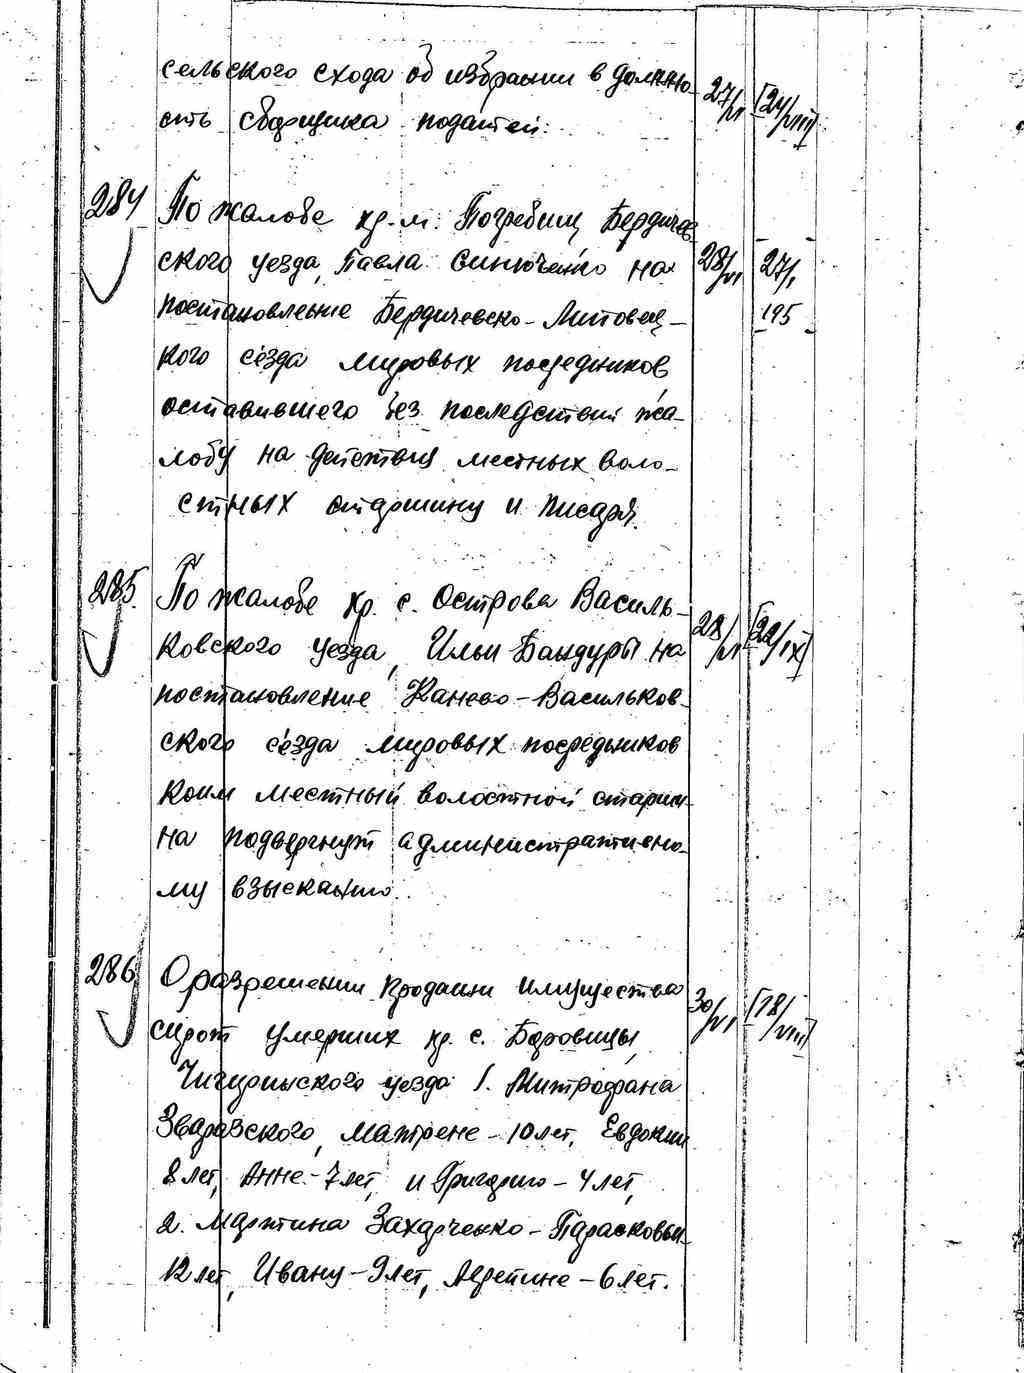 сельского схода об избрании в должно- 27/VI [24/VIII]
сть сборщика податей.
284 По жалобе кр. м. Погребищ Бердичев-
ского уезда, Павла Синюченко на 28/VI 27/I
постановление Бердичевско-Липовец- 195
кого с'езда мировых посредников
оставившего без последствий жа-
лобу на действия местных воло-
стных старшину и писаря.
285. По жалобе кр. с. Острова Василь-
ковского уезда, Ильи Бандуры на 28/VI [22/IX]
постановление Канево-Васильков-
ского с'езда мировых посредников
коим местный волостной старши-
на подвергнут административно-
му взысканию.
286 О разрешении продажи имущества
сирот умерших кр. с. Боровицы, 30/VI [18/VIII]
Чигиринского уезда 1. Митрофана
Збаразского, Матрене - 10 лет, Евдокии
8 лет, Анне - 7 лет, и Григорию - 4 лет,
2. Мартина Захарченко - Парасковьи
12 лет, Ивану - 9 лет, - 6 лет.